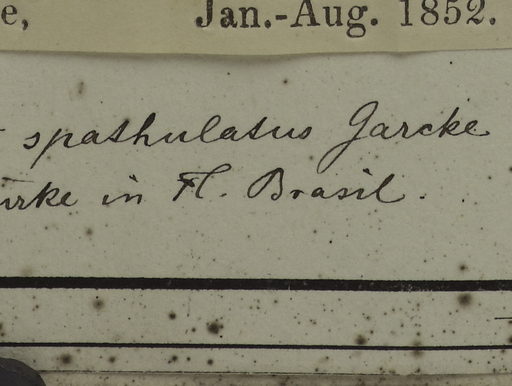 e, Jan.-Aug. 1852.
spathulatus Garcke
urke in Fl. Brasil.